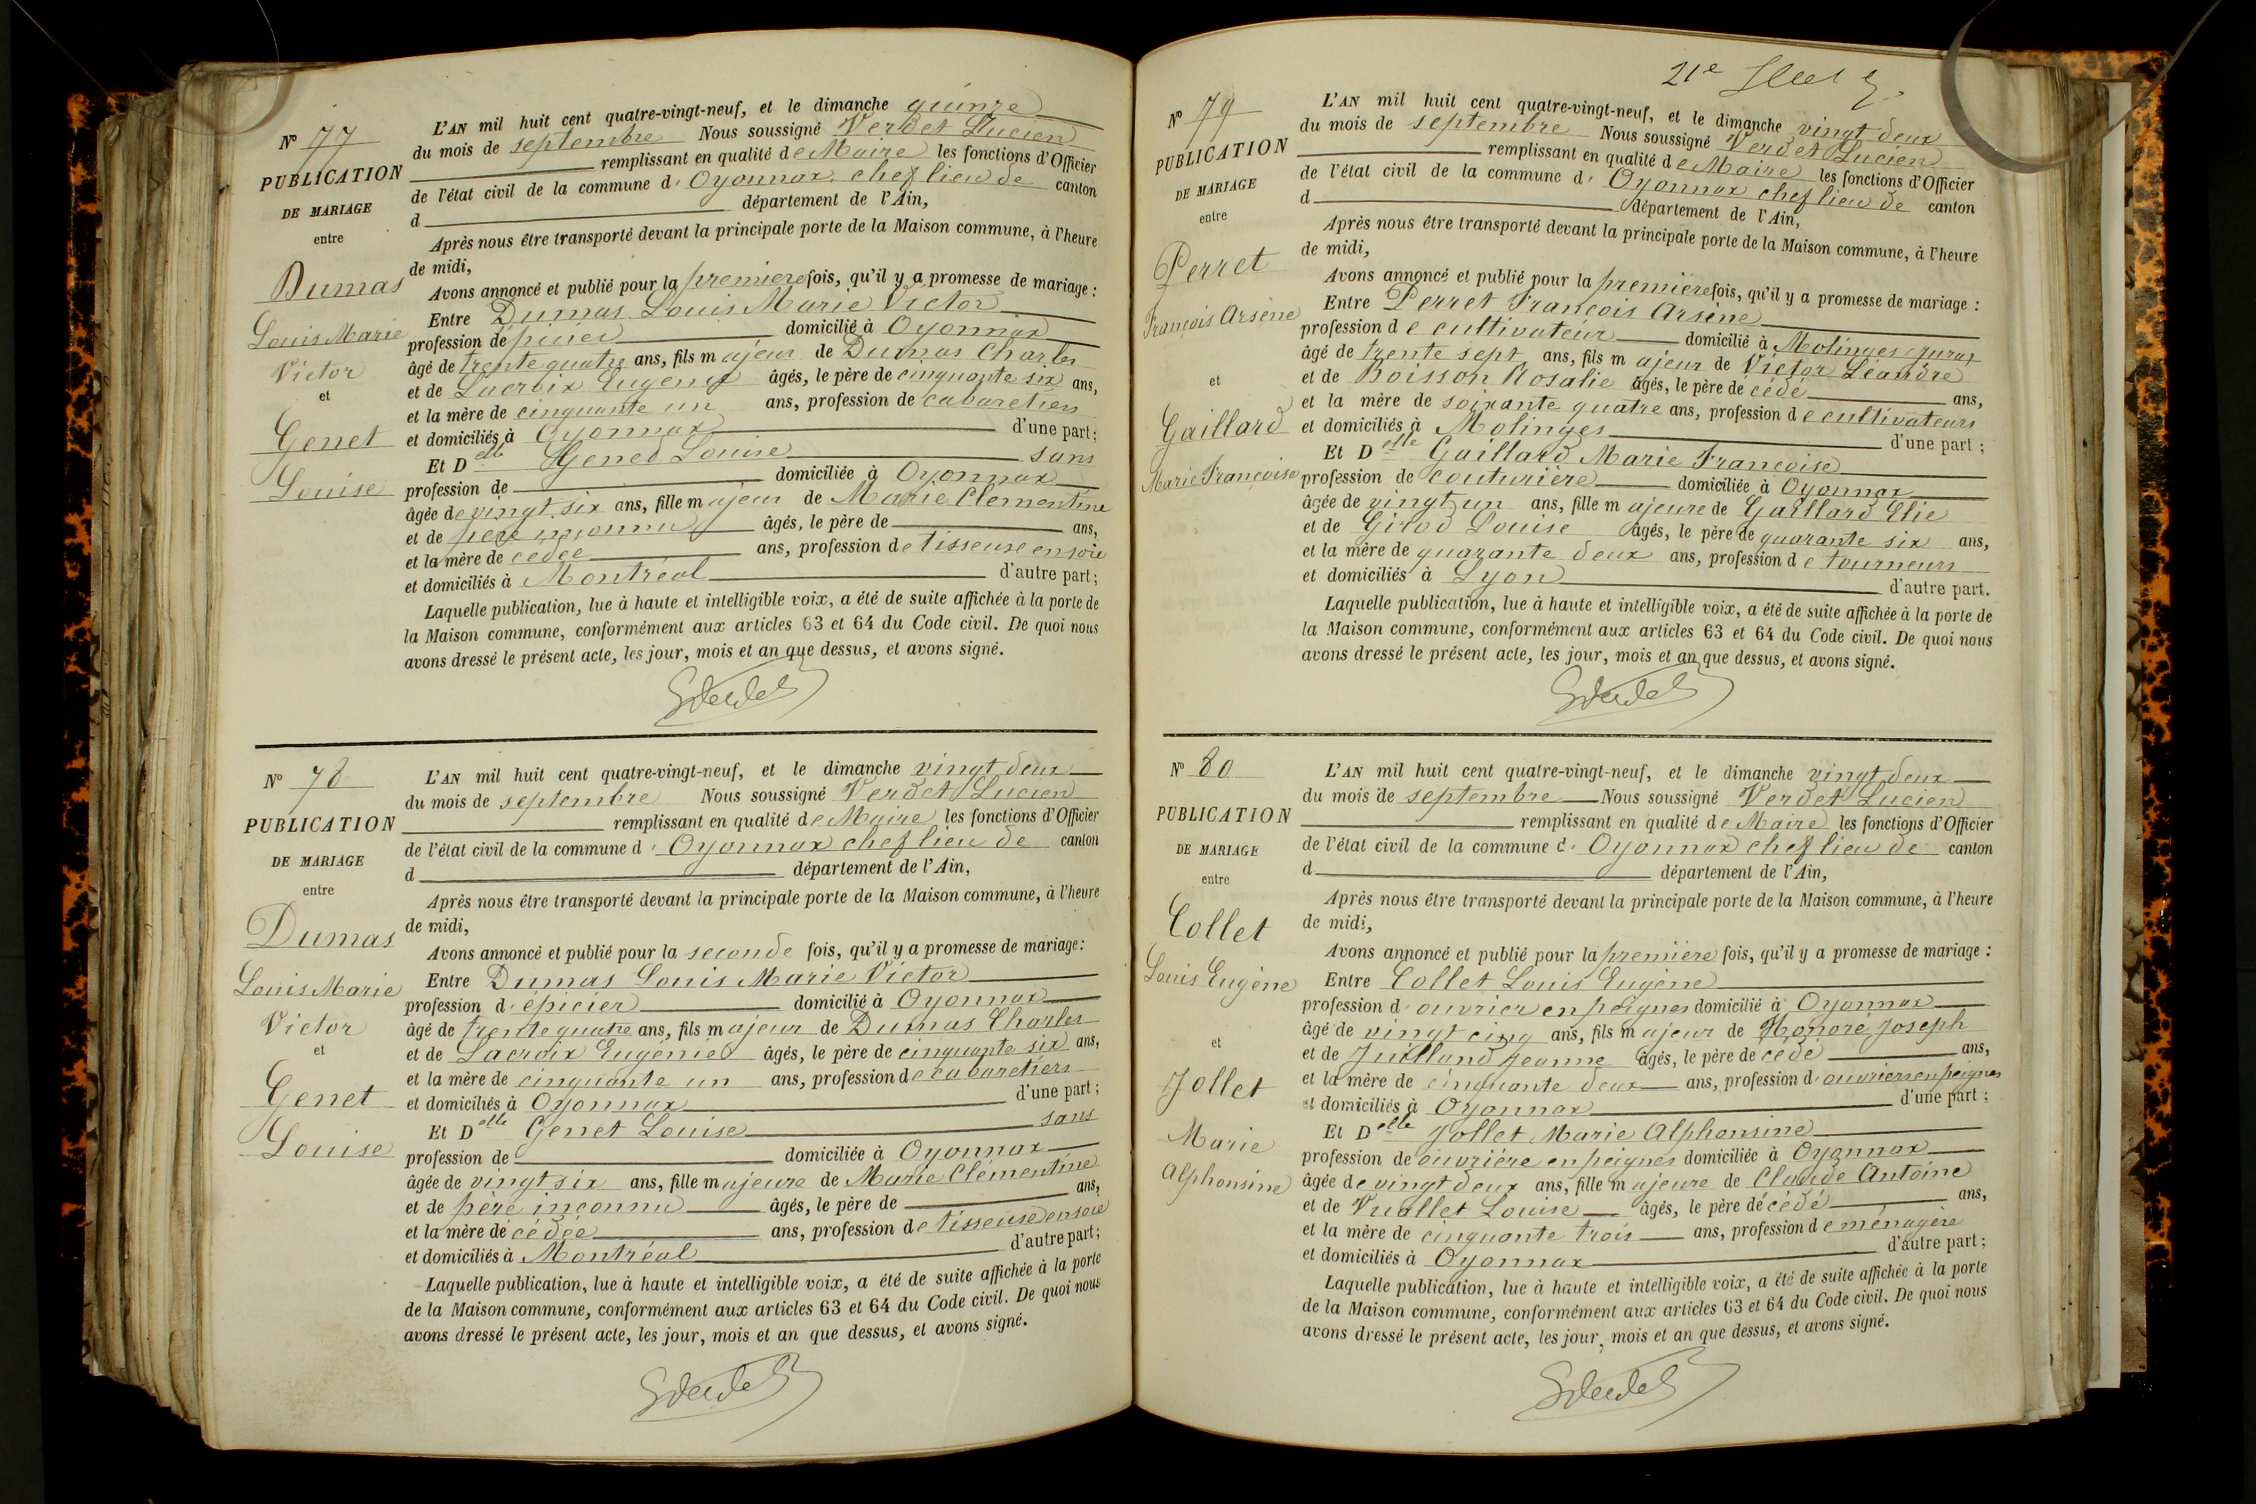 N° 77
PUBLICATION
DE MARIAGE
entre
Dumas
Louis Marie
Victor
et
Genet
Louise
L'AN mil huit cent quatre-vingt-neuf, et le dimanche quinze
du mois de septembre Nous soussigné Verdet Lucien
remplissant en qualité de Maire les fonctions d'Officier
de l'état civil de la commune d' Oyonnax, chef lieu de canton
d département de l'Ain,
Après nous être transporté devant la principale porte de la Maison commune, à l'heure
de midi,
Avons annoncé et publié pour la premiere fois, qu'il y a promesse de mariage :
Entre Dumas Louis Marie Victor
profession d'épicier domicilié à Oyonnax
âgé de trente quatre ans, fils majeur de Dumas Charles
et de Lacroix Eugenie âgés, le père de cinquante six ans,
et la mère de cinquante un ans, profession de cabaretiers
et domiciliés à Oyonnax d'une part ;
Et Delle Genet Louise sans
profession de domiciliée à Oyonnax
âgée de vingt six ans, fille majeur de Marie Clementine
et de père inconnu âgés, le père de ans,
et la mère de cédée ans, profession de tisseuse en soie
et domiciliés à Montréal d'autre part ;
Laquelle publication, lue à haute et intelligible voix, a été de suite affichée à la porte de
la Maison commune, conformément aux articles 63 et 64 du Code civil. De quoi nous
avons dressé le présent acte, les jour, mois et an que dessus, et avons signé.
N° 78
PUBLICATION
DE MARIAGE
entre
Dumas
Louis Marie
Victor
et
Genet
Louise
L'AN mil huit cent quatre-vingt-neuf, et le dimanche vingt deux
du mois de septembre Nous soussigné Verdet Lucien
remplissant en qualité de Maire les fonctions d'Officier
de l'état civil de la commune d' Oyonnax chef lieu de canton
d département de l'Ain,
Après nous être transporté devant la principale porte de la Maison commune, à l'heure
de midi,
Avons annoncé et publié pour la seconde fois, qu'il y a promesse de mariage :
Entre Dumas Louis Marie Victor
profession d'épicier domicilié à Oyonnax
âgé de trente quatre ans, fils majeur de Dumas Charles
et de Lacroix Eugénie âgés, le père de cinquante six ans,
et la mère de cinquante un ans, profession de cabaretiers
et domiciliés à Oyonnax d'une part ;
Et Delle Genet Louise sans
profession de domiciliée à Oyonnax
âgée de vingt six ans, fille majeure de Marie Clémentine
et de père inconnu âgés, le père de ans,
et la mère de cédée ans, profession de tisseuse en soie
et domiciliés à Montréal d'autre part ;
Laquelle publication, lue à haute et intelligible voix, a été de suite affichée à la porte
de la Maison commune, conformément aux articles 63 et 64 du Code civil. De quoi nous
avons dressé le présent acte, les jour, mois et an que dessus, et avons signé.
21e
N° 79
PUBLICATION
DE MARIAGE
entre
Perret
François Arsène
et
Gaillard
Marie Françoise
L'AN mil huit cent quatre-vingt-neuf, et le dimanche vingt deux
du mois de septembre Nous soussigné Verdet Lucien
remplissant en qualité de Maire les fonctions d'Officier
de l'état civil de la commune d' Oyonnax chef lieu de canton
d département de l'Ain,
Après nous être transporté devant la principale porte de la Maison commune, à l'heure
de midi,
Avons annoncé et publié pour la premiere fois, qu'il y a promesse de mariage :
Entre Perret François Arsène
profession de cultivateur domicilié à Molinges (Jura)
âgé de trente sept ans, fils majeur de Victor Léandre
et de Boisson Rosalie âgés, le père de cédé ans,
et la mère de soixante quatre ans, profession de cultivateurs
et domiciliés à Molinges d'une part ;
Et Delle Gaillard Marie Françoise
profession de couturière domiciliée à Oyonnax
âgée de vingt un ans, fille majeure de Gaillard Elie
et de Girod Louise âgés, le père de quarante six ans,
et la mère de quarante deux ans, profession de tourneurs
et domiciliés à Lyon d'autre part.
Laquelle publication, lue à haute et intelligible voix, a été de suite affichée à la porte de
la Maison commune, conformément aux articles 63 et 64 du Code civil. De quoi nous
avons dressé le présent acte, les jour, mois et an que dessus, et avons signé.
N° 80
PUBLICATION
DE MARIAGE
entre
Collet
Louis Eugène
et
Jollet
Marie
Alphonsine
L'AN mil huit cent quatre-vingt-neuf, et le dimanche vingt deux
du mois de septembre Nous soussigné Verdet Lucien
remplissant en qualité de Maire les fonctions d'Officier
de l'état civil de la commune d' Oyonnax chef lieu de canton
d département de l'Ain,
Après nous être transporté devant la principale porte de la Maison commune, à l'heure
de midi,
Avons annoncé et publié pour la première fois, qu'il y a promesse de mariage :
Entre Collet Louis Eugène
profession d'ouvrier en peignes domicilié à Oyonnax
âgé de vingt cinq ans, fils majeur de Honoré Joseph
et de Juilland Jeanne âgés, le père de cédé ans,
et la mère de cinquante deux ans, profession d'ouvriers en peignes
et domiciliés à Oyonnax d'une part ;
Et Delle Jollet Marie Alphonsine
profession de ouvrière en peignes domiciliée à Oyonnax
âgée de vingt deux ans, fille majeure de Claude Antoine
et de Vuallet Louise âgés, le père décédé ans,
et la mère de cinquante trois ans, profession de ménagère
et domiciliés à Oyonnax d'autre part ;
Laquelle publication, lue à haute et intelligible voix, a été de suite affichée à la porte
de la Maison commune, conformément aux articles 63 et 64 du Code civil. De quoi nous
avons dressé le présent acte, les jour, mois et an que dessus, et avons signé.